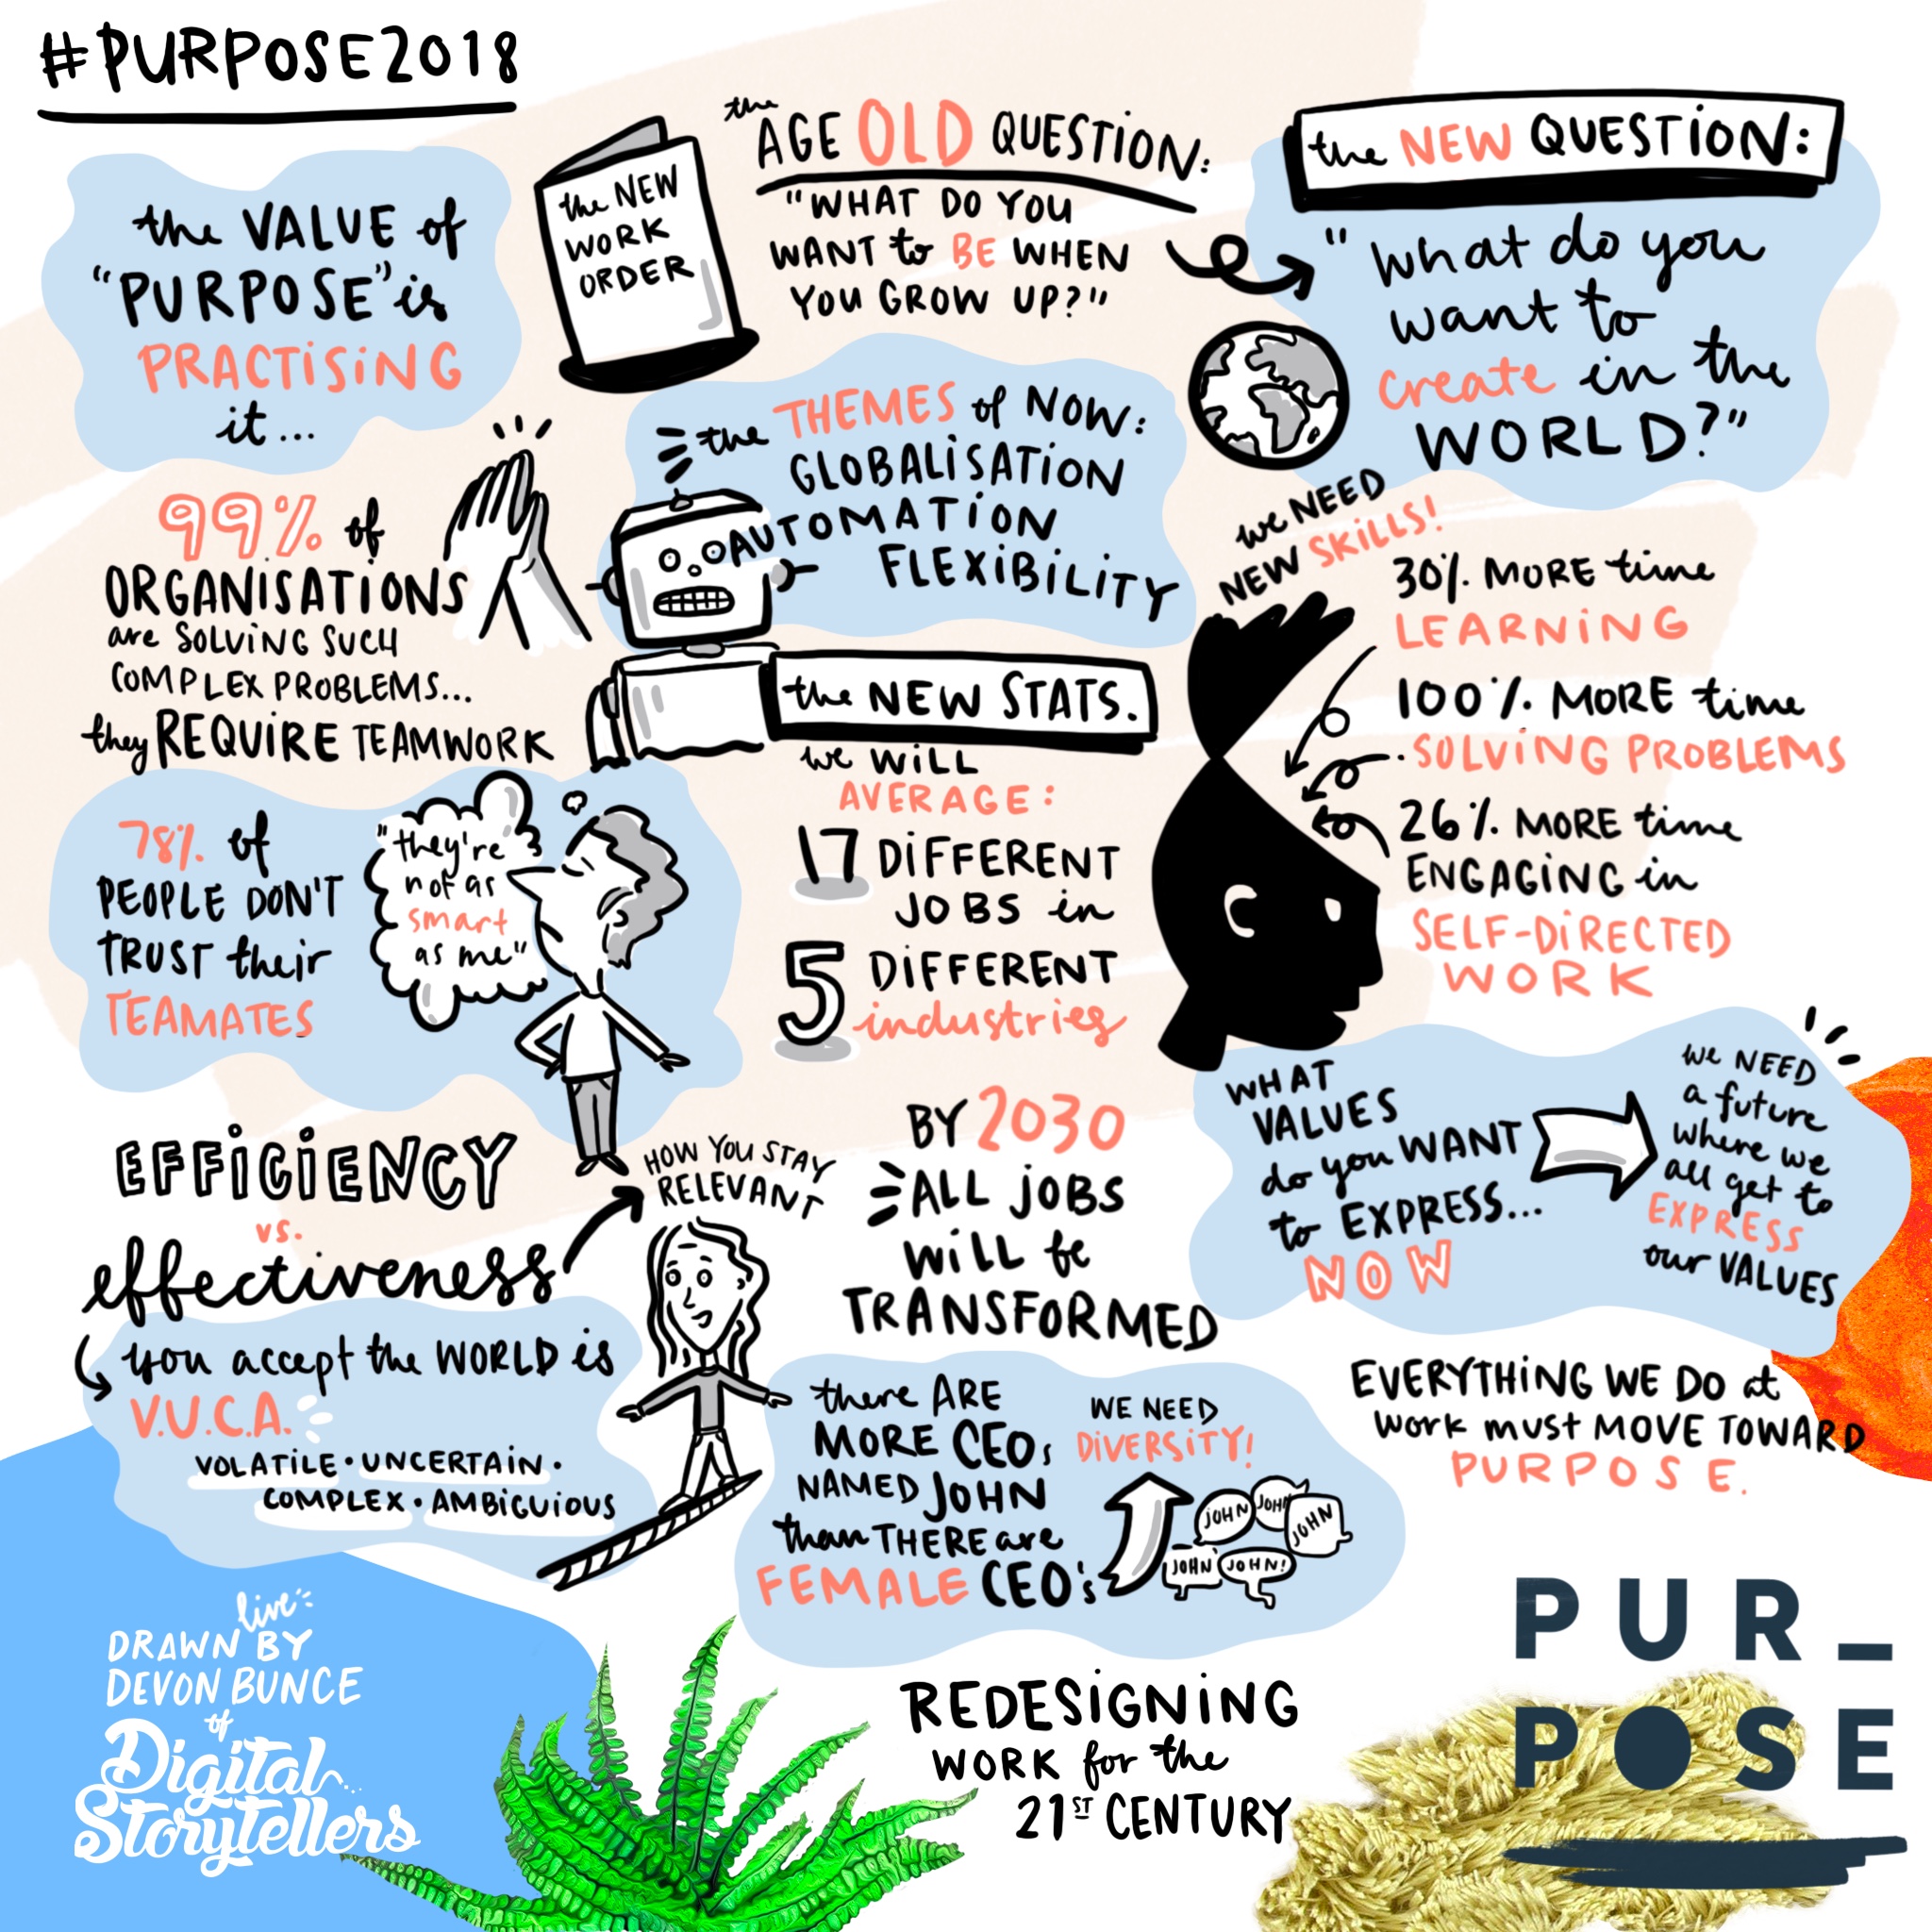 #PURPOSE2018
the VALUE of
"PURPOSE" is
PRACTISING
it...
99% of
ORGANISATIONS
are SOLVING SUCH
COMPLEX PROBLEMS...
they REQUIRE TEAMWORK
78% of
PEOPLE DON'T
TRUST their
TEAMATES
"they're
not as
smart
as me"
EFFICIENCY
vs.
effectiveness
HOW YOU STAY
RELEVANT
you accept the WORLD is
V.U.C.A.
VOLATILE • UNCERTAIN •
COMPLEX • AMBIGUIOUS
the NEW
WORK
ORDER
the AGE OLD QUESTION:
"WHAT DO YOU
WANT to BE WHEN
YOU GROW UP?"
the THEMES of NOW:
GLOBALISATION
AUTOMATION
FLEXIBILITY
the NEW STATS.
we WILL
AVERAGE:
17 DIFFERENT
JOBS in
5 DIFFERENT
industries
BY 2030
ALL JOBS
WILL be
TRANSFORMED
there ARE
MORE CEOs
NAMED JOHN
than THERE are
FEMALE CEO's
WE NEED
DIVERSITY!
JOHN
JOHN
JOHN
JOHN
JOHN!
the NEW QUESTION:
"What do you
want to
create in the
WORLD?"
we NEED
NEW SKILLS!
30% MORE time
LEARNING
100% MORE time
SOLVING PROBLEMS
26% MORE time
ENGAGING in
SELF-DIRECTED
WORK
WHAT
VALUES
do you WANT
to EXPRESS...
NOW
we NEED
a future
where we
all get to
EXPRESS
our VALUES
EVERYTHING WE DO at
work must MOVE TOWARD
PURPOSE.
live
DRAWN BY
DEVON BUNCE
of
Digital
Storytellers
REDESIGNING
WORK for the
21ST CENTURY
PUR_
POSE